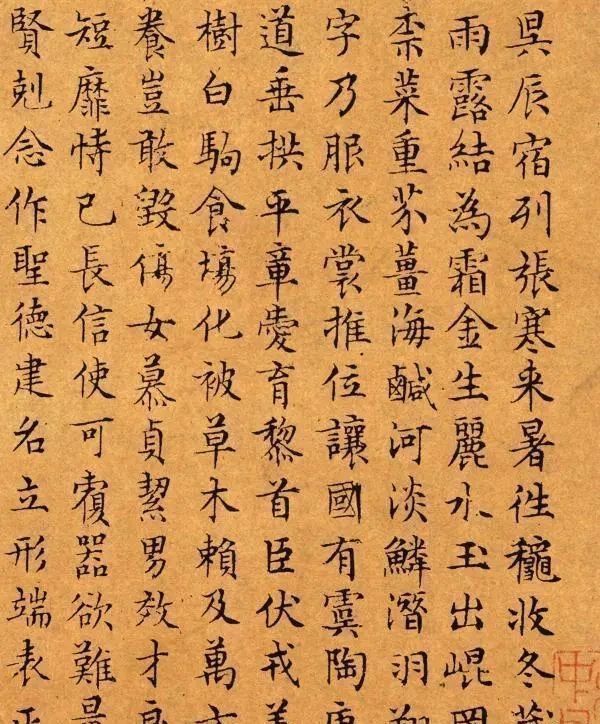 昃辰宿列張寒来暑往穐收冬藏
雨露結為霜金生麗水玉出崐岡
柰菜重芥薑海鹹河淡鱗潛羽翔
字乃服衣裳推位讓國有虞陶唐
道垂拱平章愛育黎首臣伏戎羌
樹白駒食場化被草木賴及萬方
養豈敢毀傷女慕貞絜男效才良
短靡恃己長信使可覆器欲難量
賢剋念作聖德建名立形端表正